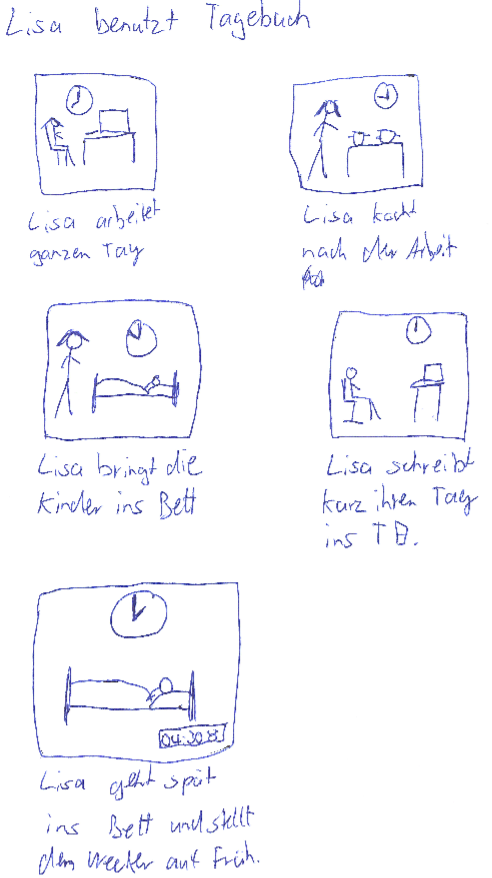 Lisa benutzt Tagebuch
Lisa arbeitet
ganzen Tag
Lisa kocht
nach der Arbeit
Lisa bringt die
Kinder ins Bett
Lisa schreibt
kurz ihren Tag
ins TB.
04:30
Lisa geht spät
ins Bett und stellt
den Wecker auf Früh.